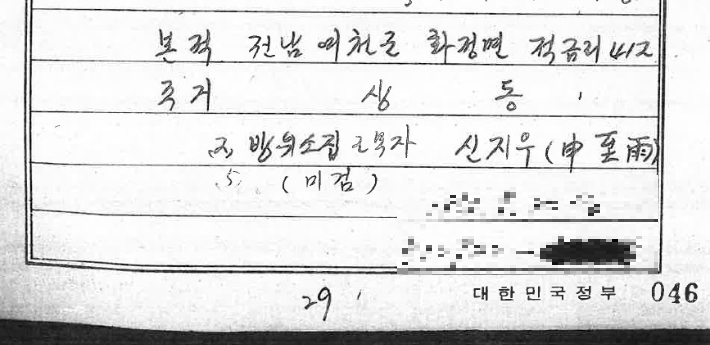 본적 전남 여천군 화정면 적금리 412
주거 상동
방위소집 근무자 신지우(申至雨)
(미검)
29
대한민국정부 046